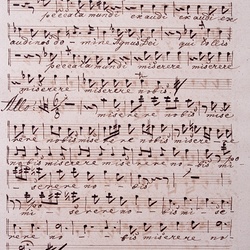 peccata mundi exaudi exaudi ex
audi nos domine agnus Dei qui tollis
peccata mundi miserere miserere
miserere nobis
Allo miserere nobis mise
rere nobis miserere miserere nobis mi
serere nobis
miserere nobis mise
rere nobis miserere nobis